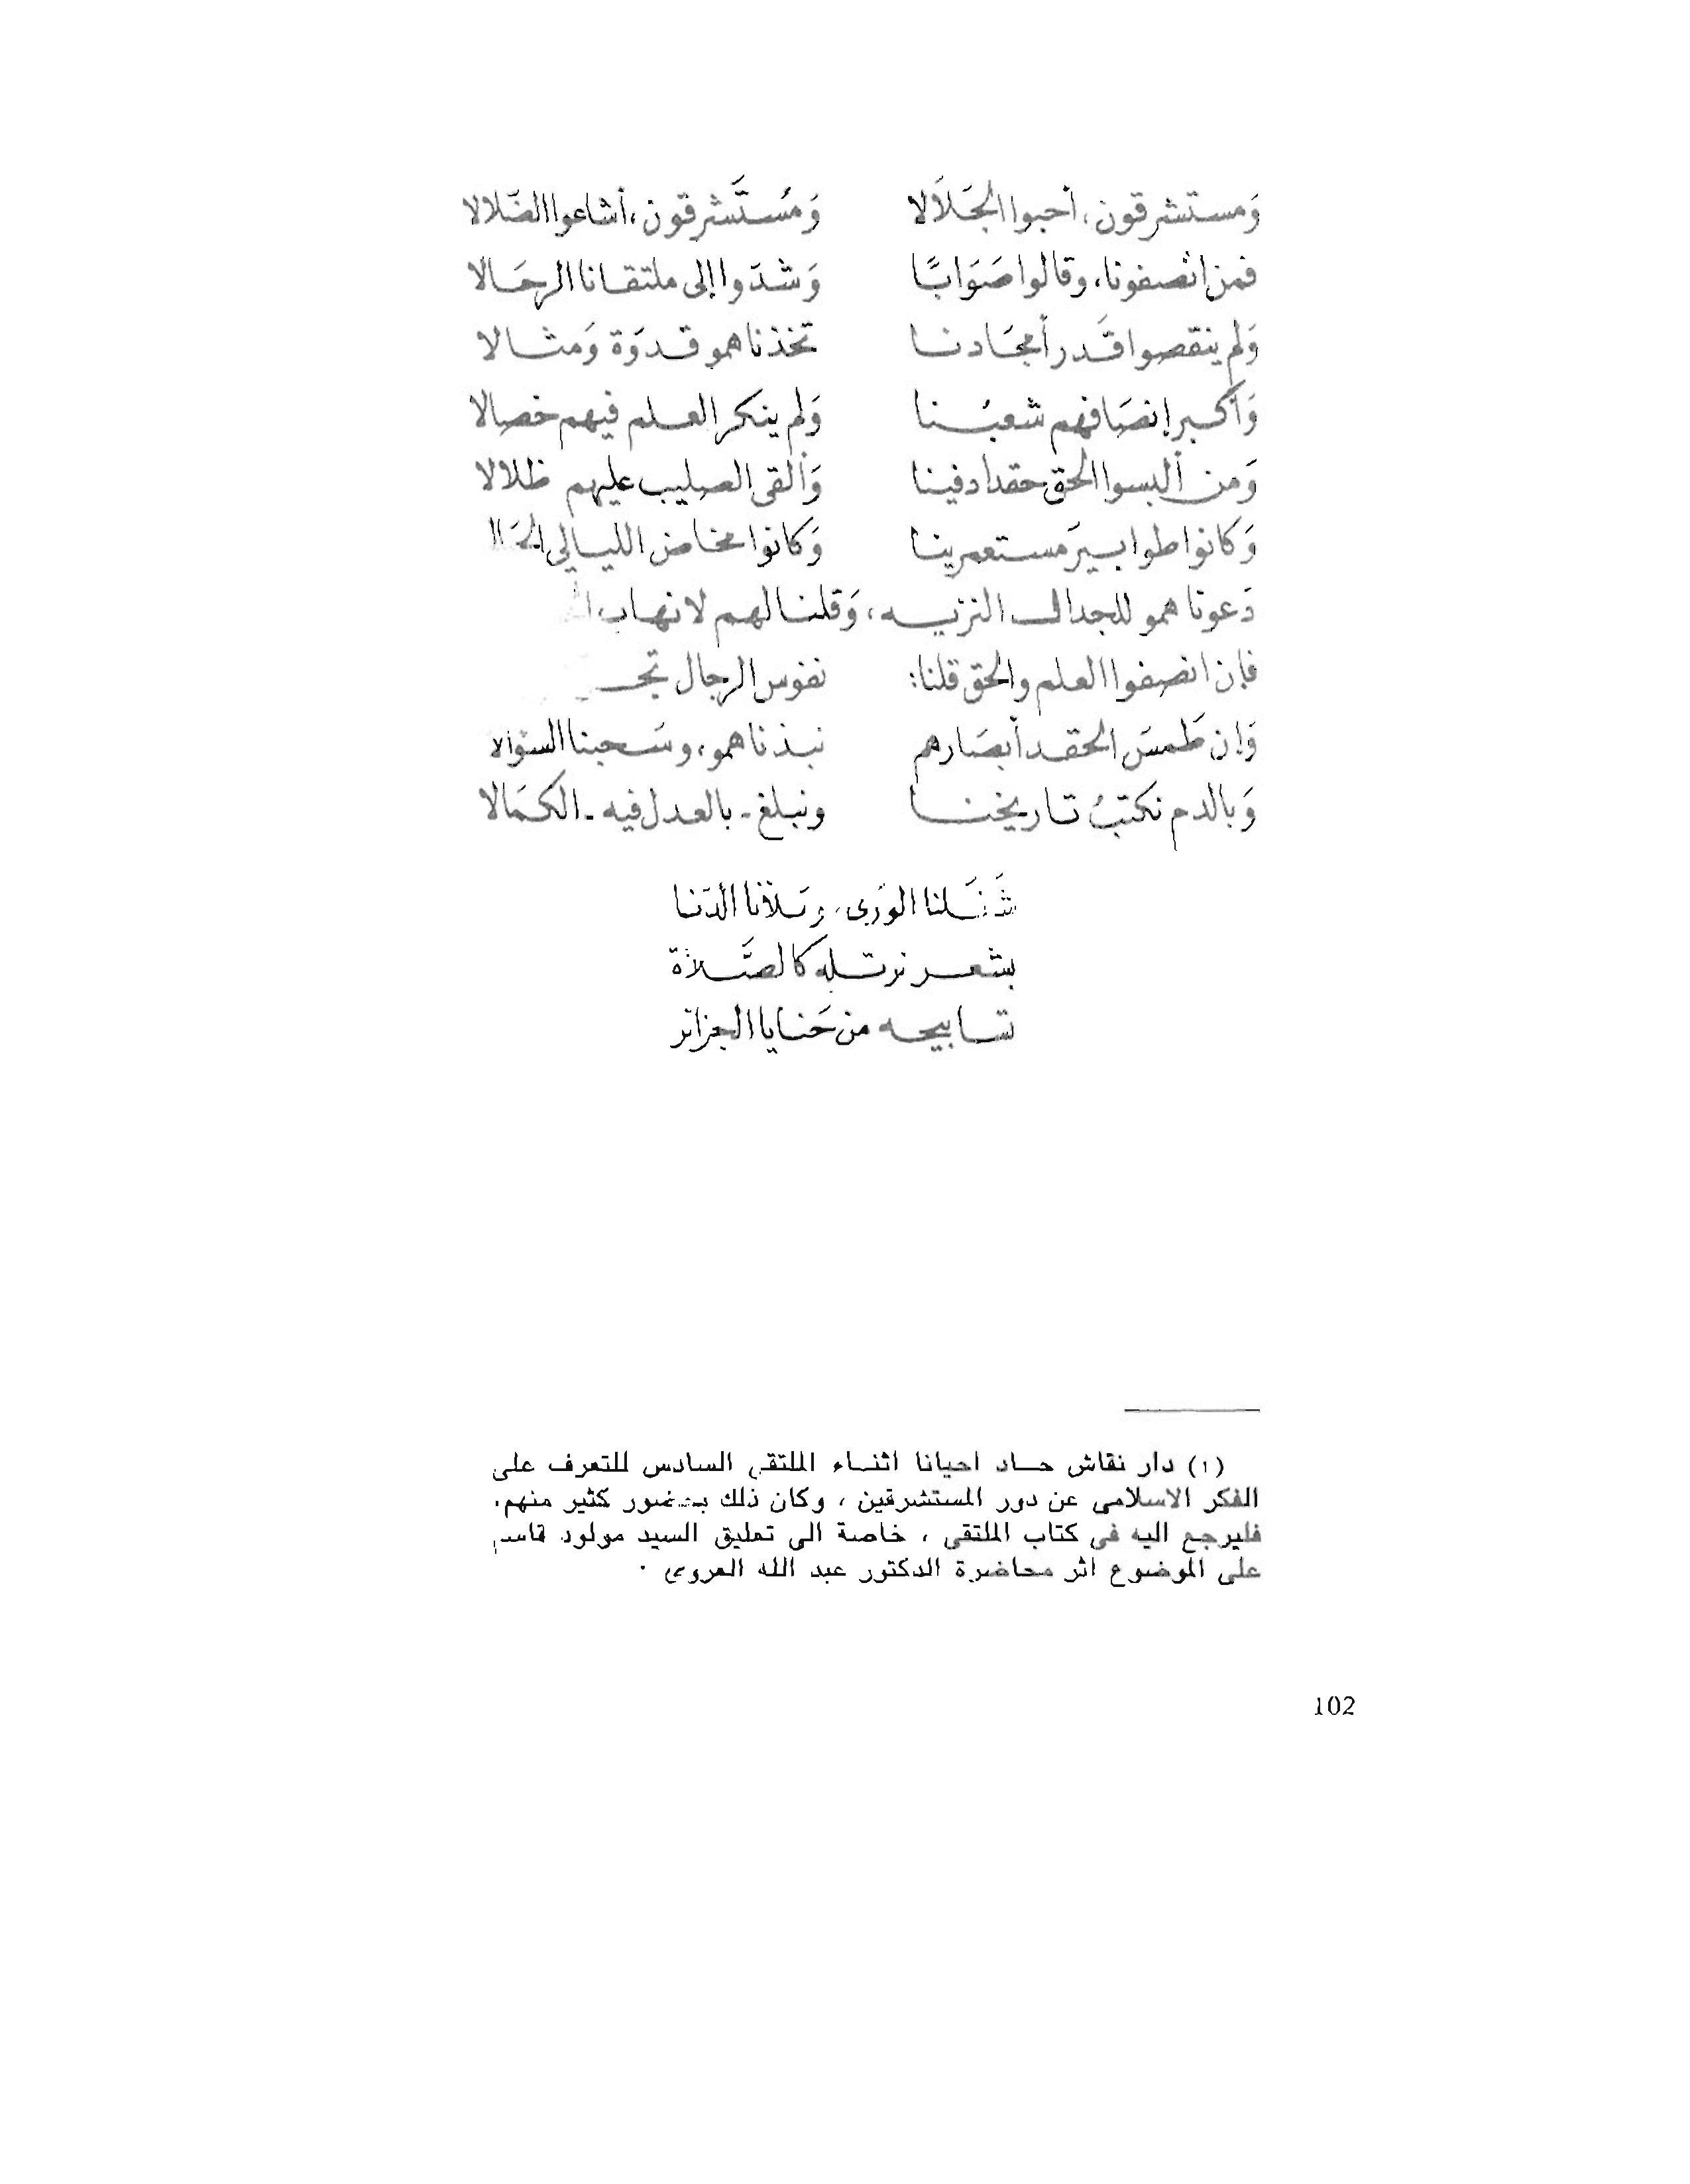 وَمستشرقون، أحبوا الجَلاَلا وَمُستَشرقون، أشاعوا الضّلالا
فمن انصفونا، وقالوا صَوَابًا وَشدّوا إلى ملتقانا الرحَالا
وَلم ينقصوا قَدر أمجَادنا تخذناهمو قدوَة وَمثالا
وَأكبر إنصَافهم شعبُنا وَلم ينكر العلم فيهم خصالا
وَمن ألبسوا الحق حقدا دفينا وَألقى الصليب عليهم ظلالا
وَكانوا طوابيرَ مستعمرينا وَكانوا مخاض الليالي
دَعوناهمو للجدال النزيه، وَقلنا لهم لا نهاب
فإن انصفوا العلم والحق قلنا: نفوس الرجال
وَإن طَمسَ الحقد أبصَارهم نبذناهمو، وسَحبنا السؤالا
وَبالدم نكتبُ تاريخنا ونبلغ - بالعدل فيه - الكمَالا
شَغَلنا الوَرى، وَمَلأنا الدّنا
بشعر نرتله كالصَّلاة
تسابيحه من حَنايا الجزائر
(١) دار نقاش حاد احيانا اثناء الملتقى السادس للتعرف على
الفكر الاسلامى عن دور المستشرقين ، وكان ذلك بحضور كثير منهم.
فليرجع اليه فى كتاب الملتقى ، خاصة الى تعليق السيد مولود قاسم
على الموضوع اثر محاضرة الدكتور عبد الله العروى .
102